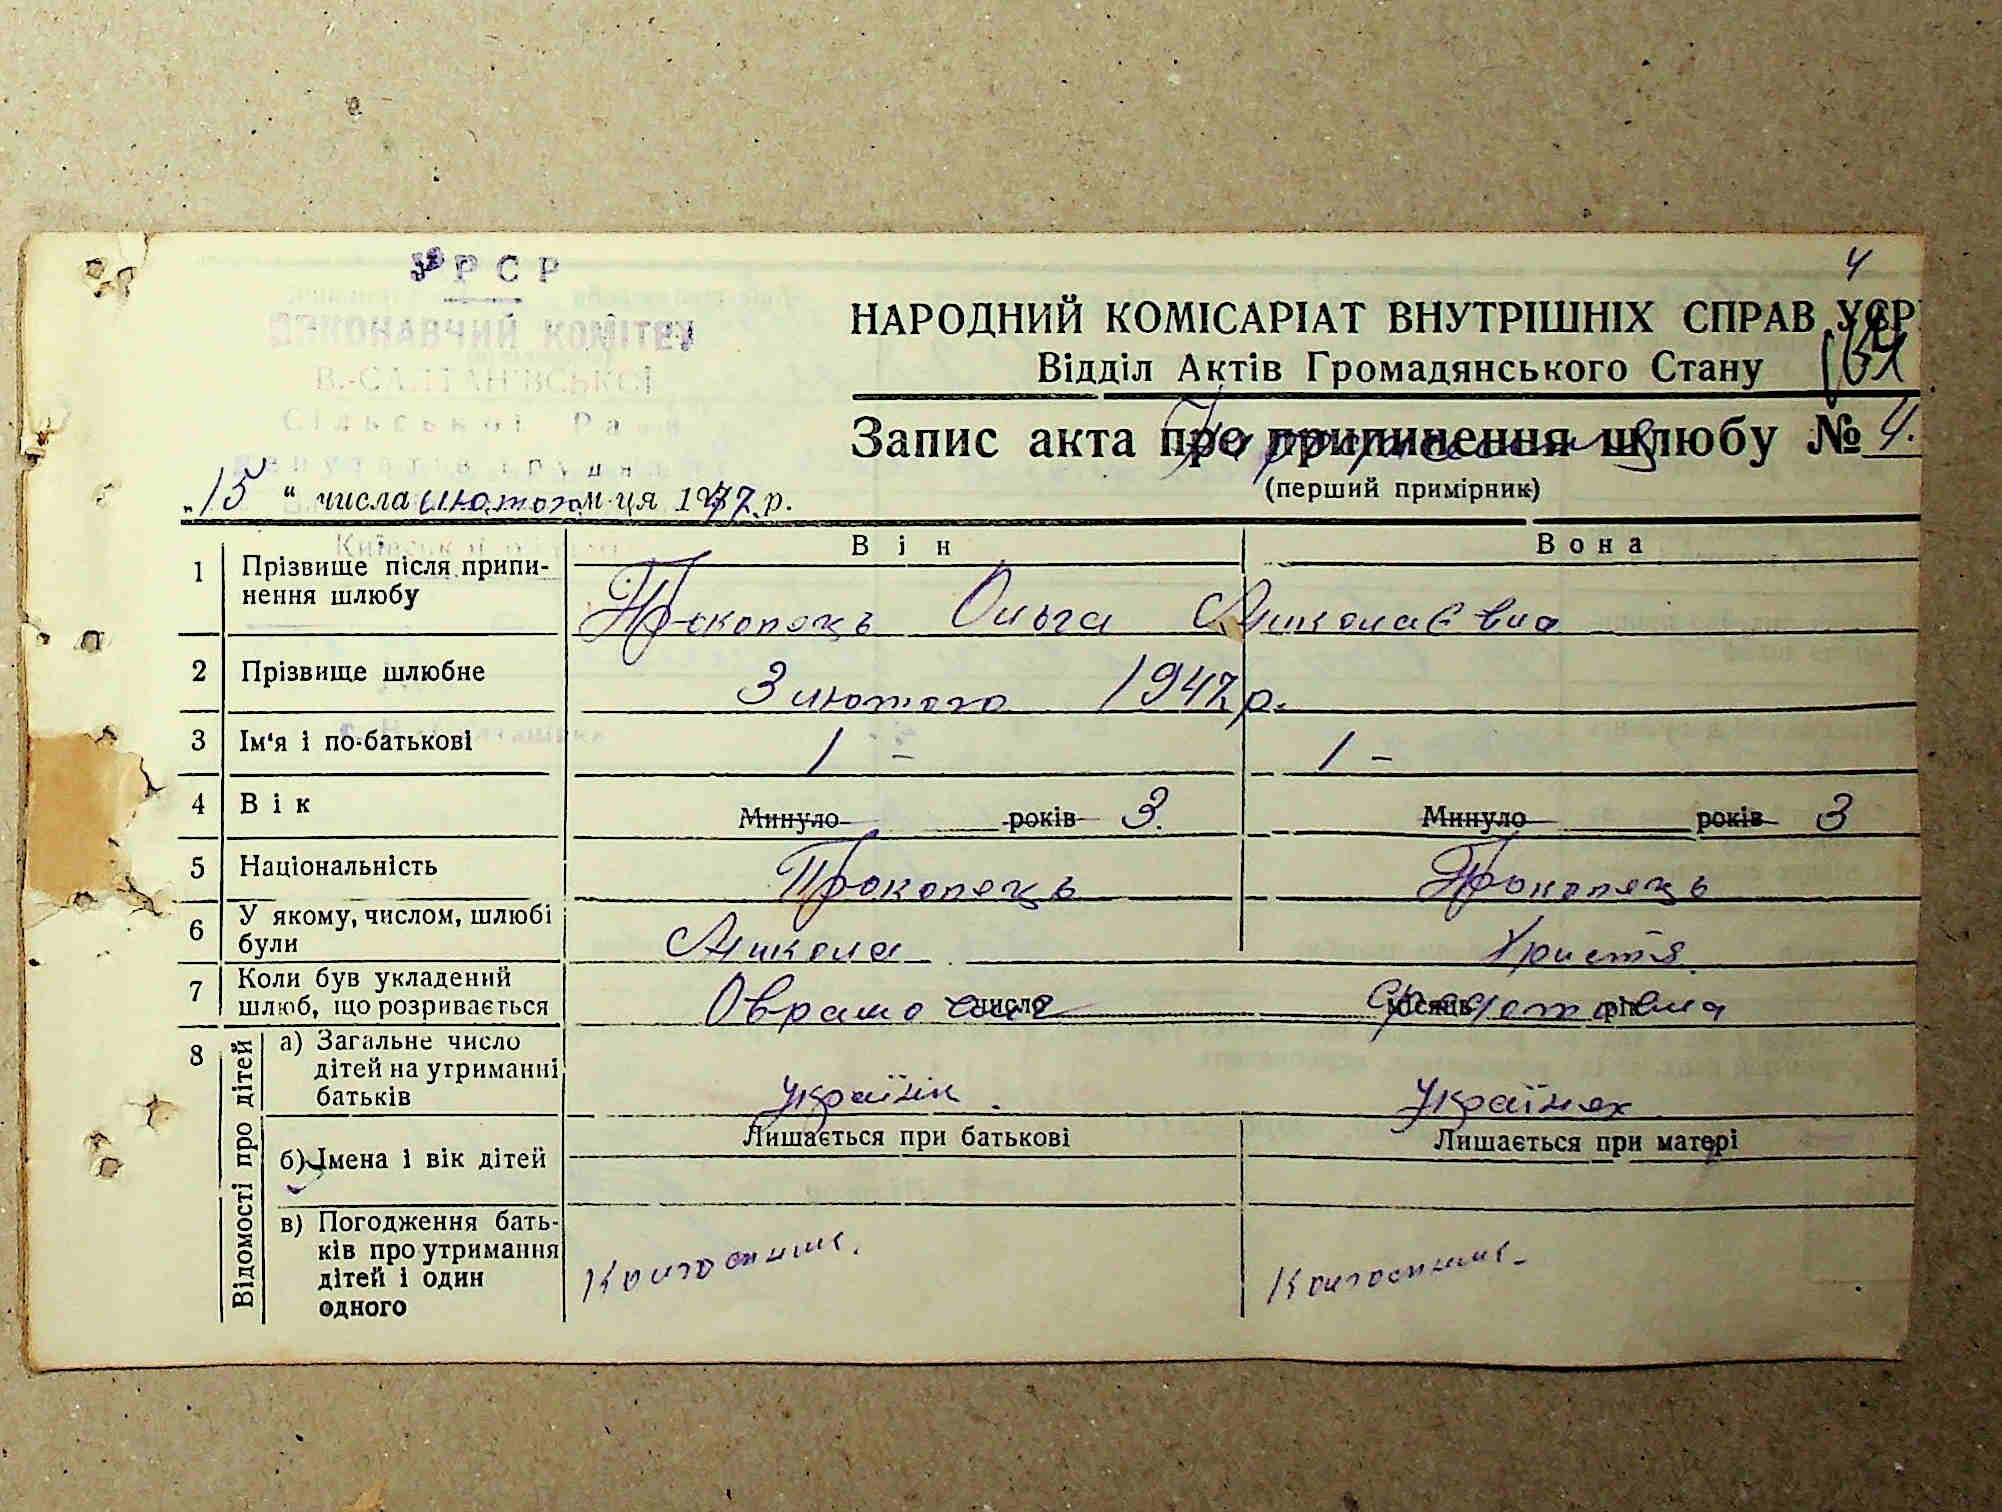 4
УРСР
ВИКОНАВЧИЙ КОМІТЕТ
Сільської Ради
НАРОДНИЙ КОМІСАРІАТ ВНУТРІШНІХ СПРАВ УСРР
Відділ Актів Громадянського Стану
Запис акта про припинення шлюбу № 4.
(перший примірник)
"15" числа лютого м-ця 1947 р.
Він Вона
1 Прізвище після припи-
нення шлюбу
Прокопець Ольга Миколаєвна
2 Прізвище шлюбне 3 лютого 1947 р.
3 Ім'я і по-батькові 1 - 1 -
4 Вік Минуло років 3. Минуло років 3
5 Національність Прокопець Прокопець
6 У якому, числом, шлюбі
були
Микола Христя
7 Коли був укладений
шлюб, що розривається
число місяць рік
8 Відомості про дітей
а) Загальне число
дітей на утриманні
батьків
українк. Українк
Лишається при батькові Лишається при матері
б) Імена і вік дітей
в) Погодження бать-
ків про утримання
дітей і один
одного
Колгоспник. Колгоспник.